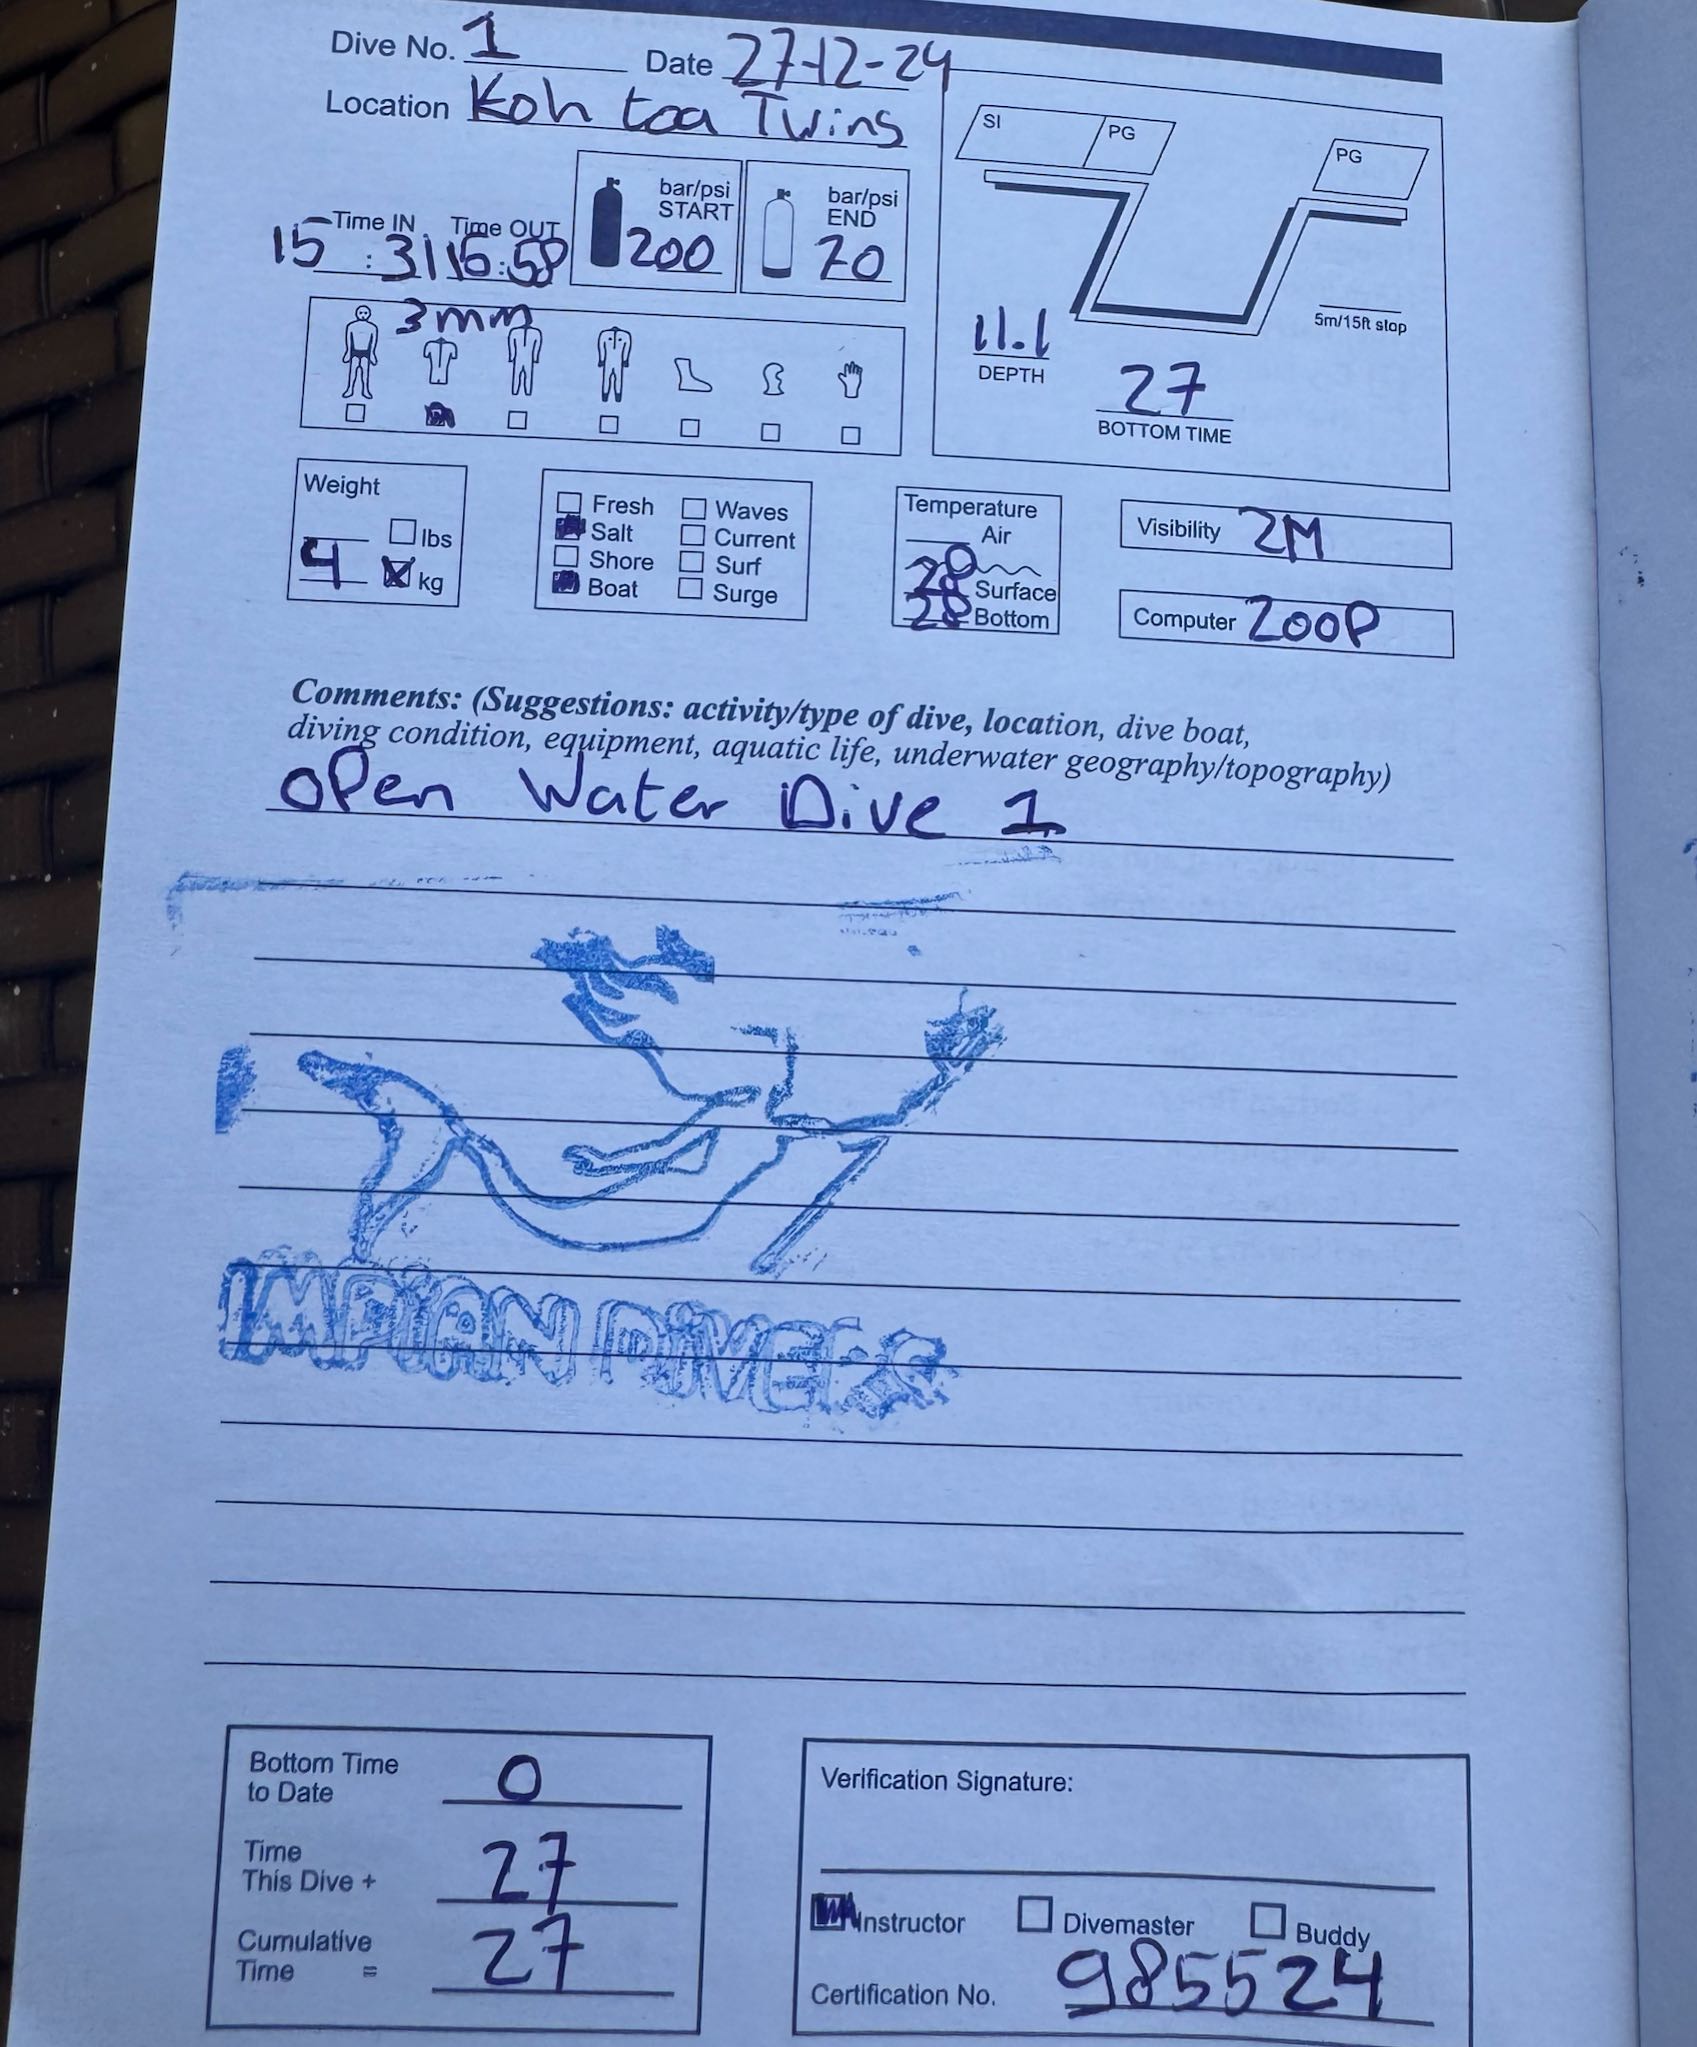 Dive No. 1 Date 27-12-24
Location Koh toa Twins
SI PG PG
Time IN Time OUT
15 : 31 15:58
bar/psi START 200
bar/psi END 70
3mm
11.1
DEPTH
27
BOTTOM TIME
5m/15ft stop
Weight
lbs
4 kg
Fresh Waves
Salt Current
Shore Surf
Boat Surge
Temperature
Air
28 Surface
28 Bottom
Visibility 2M
Computer ZOOP
Comments: (Suggestions: activity/type of dive, location, dive boat,
diving condition, equipment, aquatic life, underwater geography/topography)
Open Water Dive 1
IMPiAN DiVERS
Bottom Time
to Date 0
Time
This Dive + 27
Cumulative
Time = 27
Verification Signature:
Instructor Divemaster Buddy
Certification No. 985524